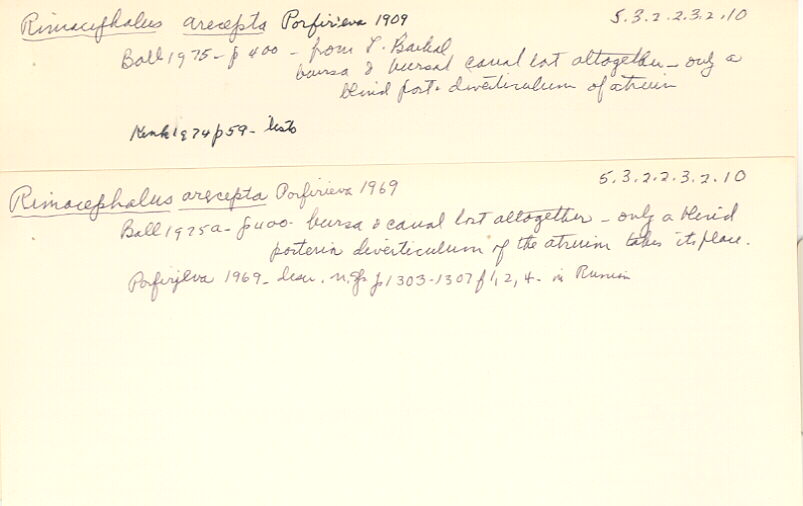 Rimacephalus arecepta Porfirieva 1909 5.3.2.2.3.2.10
Ball 1975 - p 400 - from L. Baikal
bursa & bursal canal lost altogether - only a
blind post. diverticulum of atrium
Kenk 1974 p 59 - lists
Rimacephalus arecepta Porfirieva 1969 5.3.2.2.3.2.10
Ball 1975a - p 400 - bursa & canal lost altogether - only a blind
posterior diverticulum of the atrium takes its place.
Porfirjeva 1969 - descr. n. sp. p 1303-1307 f 1, 2, 4 - in Russian